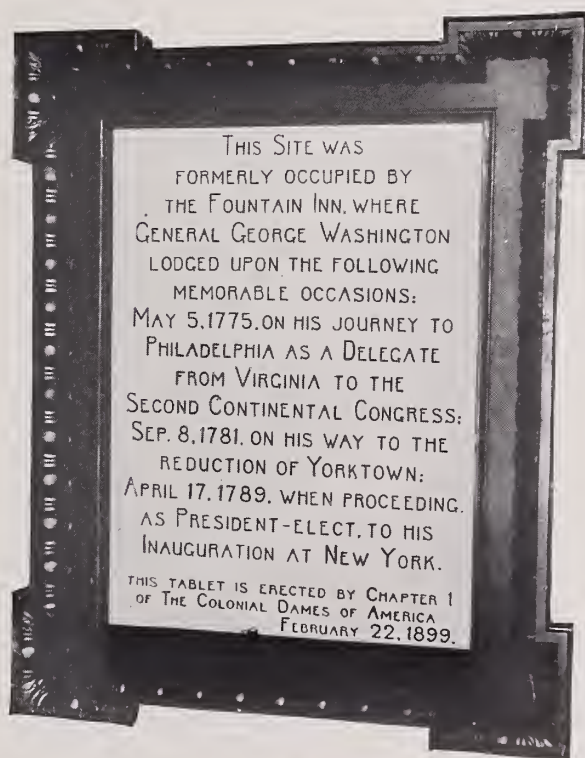 This Site was
formerly occupied by
the Fountain Inn, where
General George Washington
lodged upon the following
memorable occasions:
May 5, 1775, on his journey to
Philadelphia as a Delegate
from Virginia to the
Second Continental Congress;
Sep. 8, 1781, on his way to the
reduction of Yorktown;
April 17, 1789, when proceeding,
as President-elect, to his
Inauguration at New York.
this tablet is erected by Chapter 1
of The Colonial Dames of America
February 22, 1899.